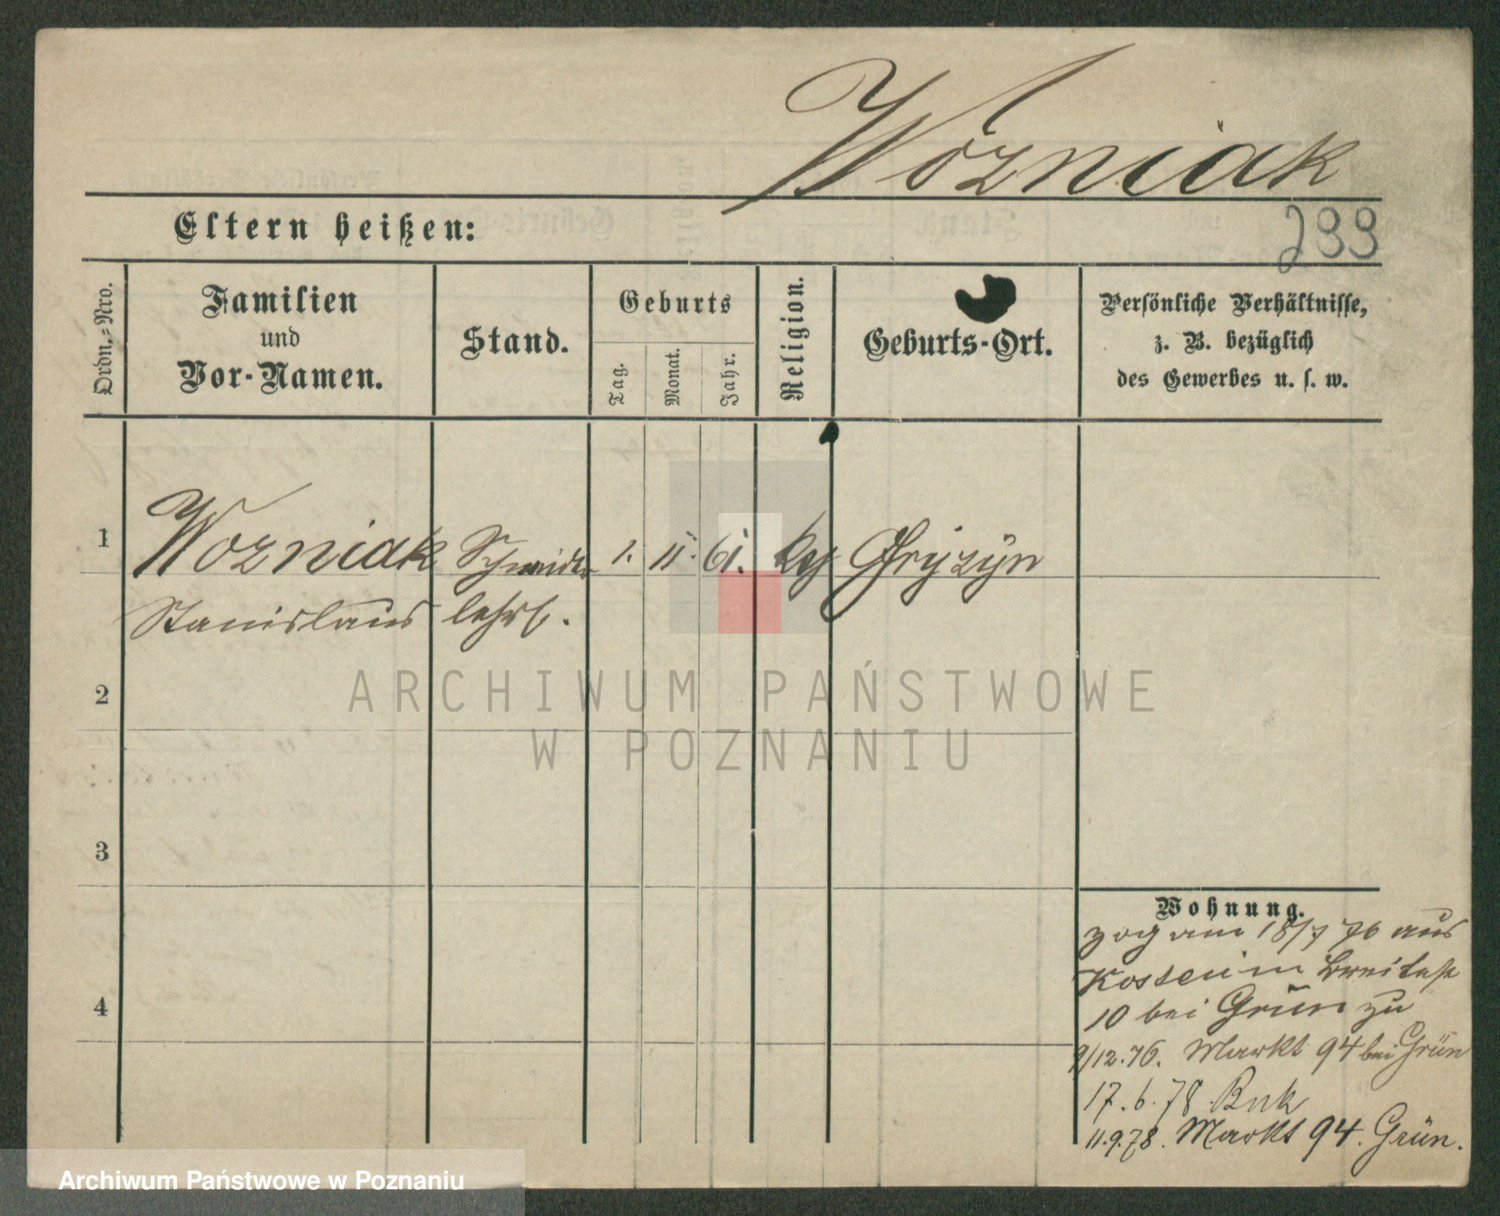 Woźniak
Eltern heißen:
233
Ordn.-Nro.
Familien
und
Vor-Namen.
Stand.
Geburts
Tag.
Monat.
Jahr.
Religion.
Geburts-Ort.
Persönliche Verhältnisse,
z. B. bezüglich
des Gewerbes u. s. w.
1
Wozniak Schneider 1. 11. 61.
Stanislaus lehrl.
2
ARCHIWUM PAŃSTWOWE
W POZNANIU
3
Wohnung.
zog am 18/7 76 aus
Kosten in Breitestr
10 bei Grün zu
9/12.76. Markt 94 bei Grün
4
17.6.78
11.9.78. Markt 94. Grün.
Archiwum Państwowe w Poznaniu